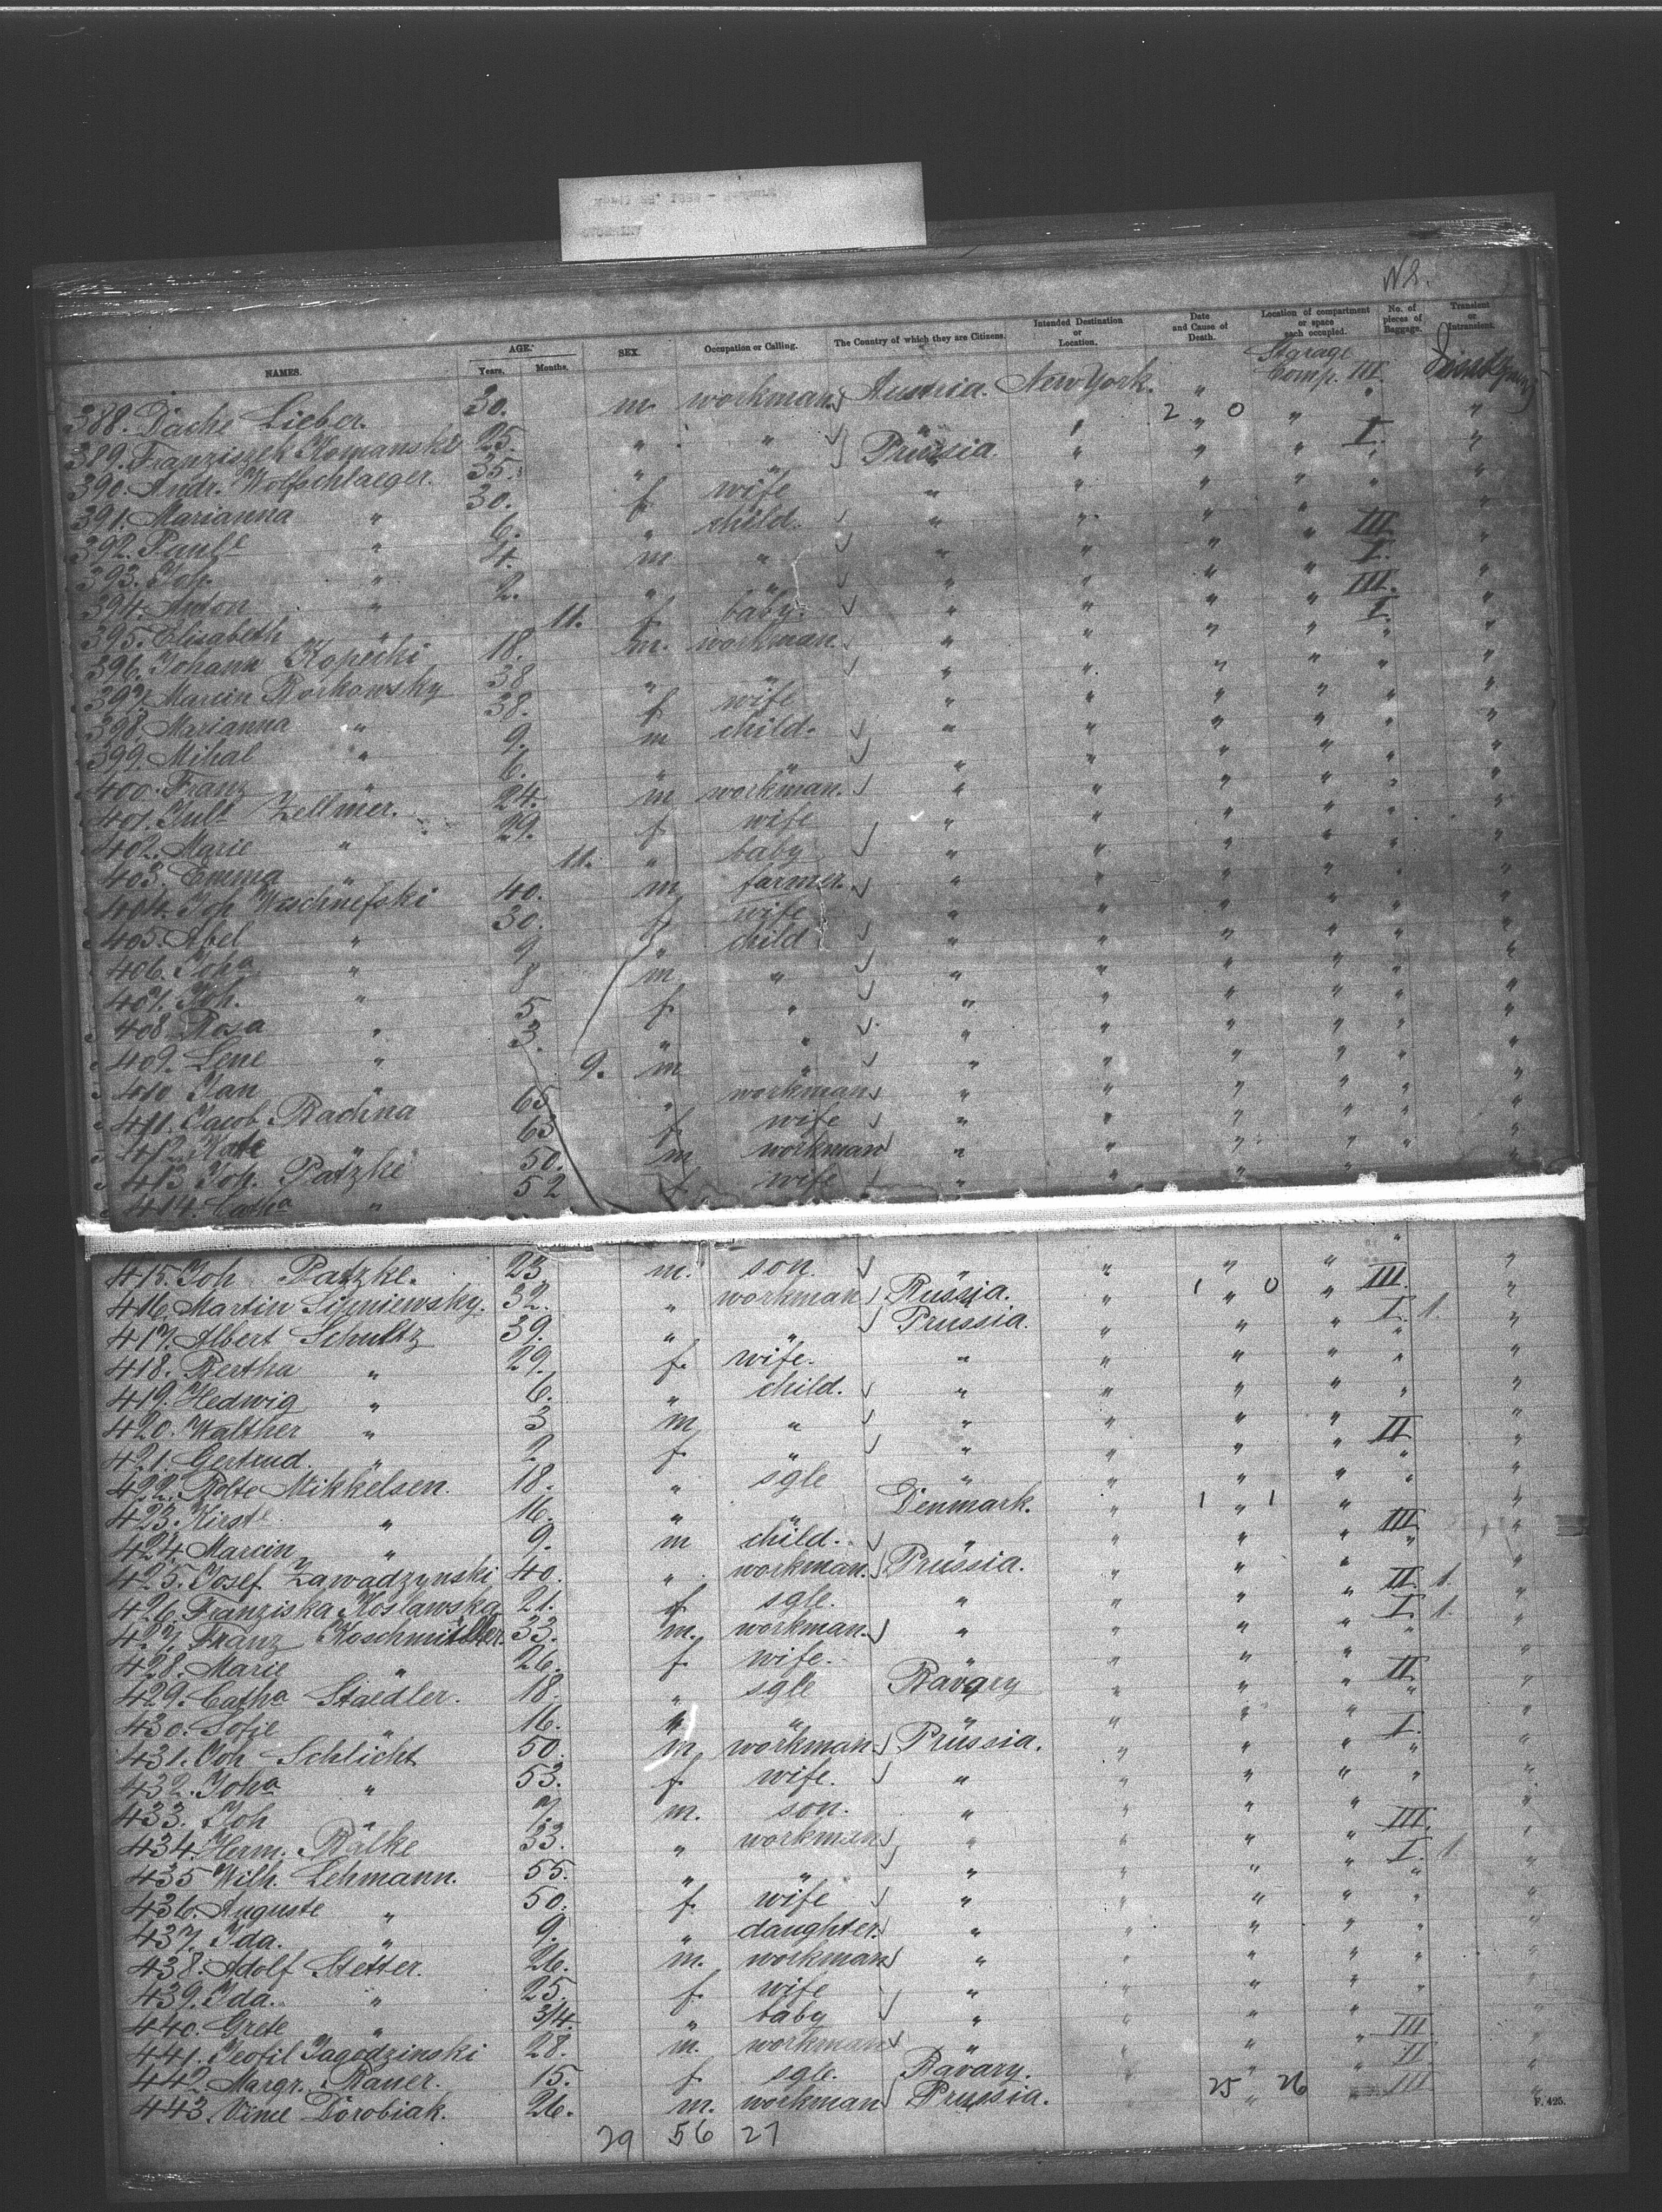 N.Y.
NAMES. AGE. Years. Months. SEX. Occupation or Calling. The Country of which they are Citizens. Intended Destination or Location. Date and Cause of Death. Location of compartment or space each occupied. No. of pieces of Baggage. Transient or Intransient.
388. Dache Lieber. 30. m. workman. Austria. New York. " Starage Comp. III. "
389. Franziszek Komanski 25. " " " " 2 " 0 " "
390. Andr. Wolfschlaeger. 35. " " Prussia. " " " I. "
391. Marianna " 30. f. wife " " " " " "
392. Paule " 6. " child. " " " " " "
393. Joh. " 4. m " " " " " III. "
394. Anton " 2. " " " " " " I. "
395. Elisabeth " 11. f. baby. " " " " III. "
396. Johann Kopecki 18. m. workman. " " " " I. "
397. Marcin Borkowsky 38 " " " " " " " "
398. Marianna " 38. f wife " " " " " "
399. Mihal " 9. m child. " " " " " "
400. Franz " 6. " " " " " " " "
401. Juls Zellmer. 24. m workman. " " " " " "
402. Marie " 29. f. wife " " " " " "
403. Emma " 11. " baby " " " " " "
404. Joh Waschnefski 40. m farmer. " " " " " "
405. Abel " 30. f. wife " " " " " "
406. Joha " 9 " child " " " " " "
407. Joh. " 8 m " " " " " " "
408 Rosa " 5 f. " " " " " " "
409. Lene " 3. " " " " " " " "
410 Jan " 9. m " " " " " " "
411. Jacob Radina 65 " workman " " " " " "
412. Kate " 63 f. wife " " " " " "
413 Joh. Patzke 50. m workman " " " " " "
414. Catha " 52 f. wife " " " " " "
415. Joh Patzke. 23. m. son. " " " " " "
416. Martin Lipniewsky. 32. " workman Russia. " 1 " 0 " III. "
417. Albert Schultz 39. " " Prussia. " " " I. 1. "
418. Bertha " 29. f. wife. " " " " " "
419. Hedwig " 6. " child. " " " " " "
420. Walther " 3 m " " " " " " "
421. Gertrud. " 2. f. " " " " " " "
422. Bolte Mikkelsen. 18. " sgle " " " " II "
423. Kirste " 16. " " Denmark. " 1 " 1 " " "
424. Marcin " 9. m child. " " " " " "
425. Josef Zawadzynski 40. " workman. Prussia. " " " III "
426. Franziska Koslawska 21. f sgle. " " " " II. 1. "
427. Franz Koschmieder. 33. m. workman. " " " " I. 1. "
428. Marie " 26. f. wife. " " " " " "
429. Catha Staedler. 18. " sgle Bavary " " " II "
430. Sofie " 16. " " " " " " " "
431. Joh Schlicht 50. m workman. Prussia. " " " I. "
432. Joha " 53. f. wife. " " " " " "
433. Joh 7. m. son. " " " " " "
434. Herm. Balke 33. " workman " " " " III. "
435 Wilh. Lehmann. 55. " " " " " " I. 1 "
436. Auguste " 50. f. wife " " " " " "
437. Ida. " 9. " daughter. " " " " " "
438. Adolf Stetter. 26. m. workman " " " " " "
439. Ida. " 25. f. wife " " " " " "
440. Grete " 3/4. " baby " " " " " "
441. Teofil Jagodzinski 28. m. workman " " " " III "
442. Margr. Bauer. 15. f. sgle. Bavary. " " " II. "
443. Vince Dorobiak. 26. m. workman Prussia. " 25 " 26 III "
F. 425.
29 56 27